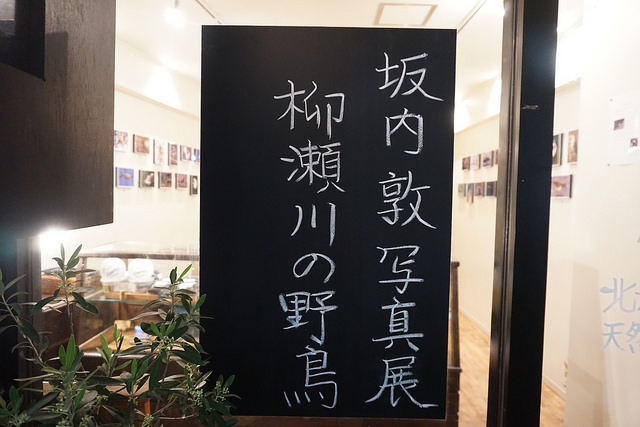 坂内敦写真展
柳瀬川の野鳥
北
天然